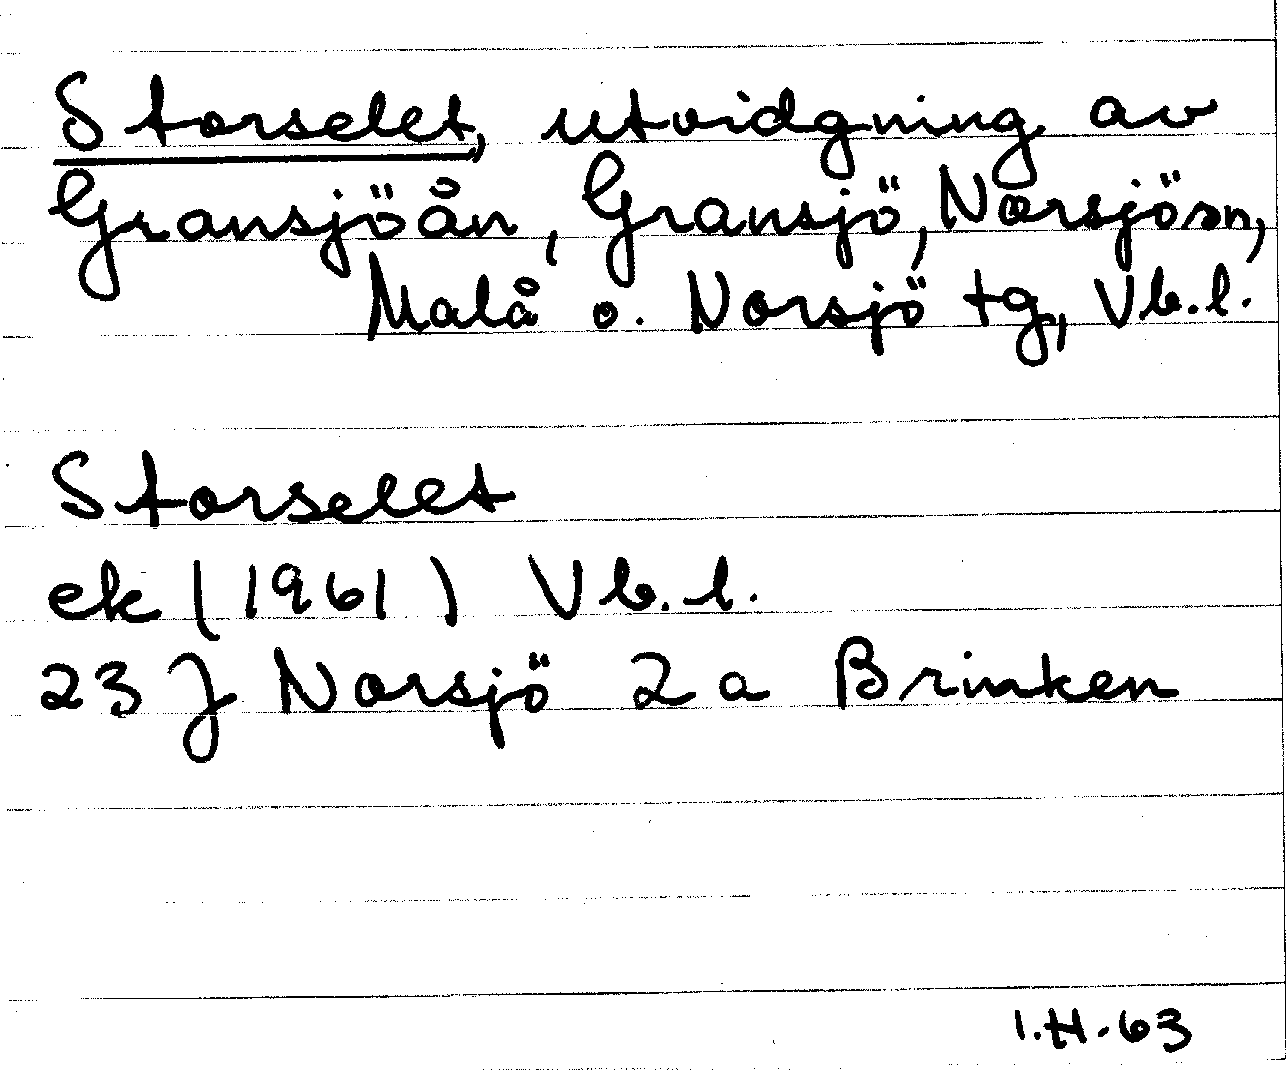 Storselet, utvidgning av
Gransjöån, Gransjö, Norsjö sn,
Malå o. Norsjö tg, Vb.l.
Storselet
ek (1961) Vb.l.
23 J Norsjö 2a Brinken
I.H. 63